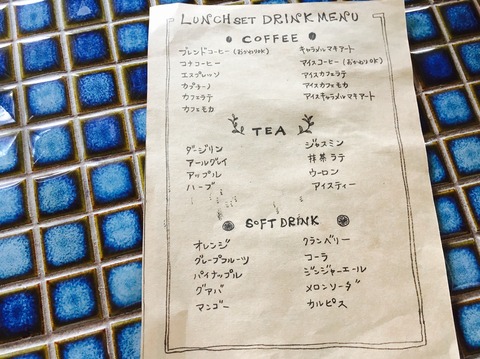 LUNCH SET DRINK MENU
COFFEE
ブレンドコーヒー (おかわりOK)
コナコーヒー
エスプレッソ
カプチーノ
カフェラテ
カフェモカ
キャラメルマキアート
アイスコーヒー (おかわりOK)
アイスカフェラテ
アイスカフェモカ
アイスキャラメルマキアート
TEA
ダージリン
アールグレイ
アップル
ハーブ
ジャスミン
抹茶ラテ
ウーロン
アイスティー
SOFT DRINK
オレンジ
グレープフルーツ
パイナップル
グァバ
マンゴー
クランベリー
コーラ
ジンジャーエール
メロンソーダ
カルピス